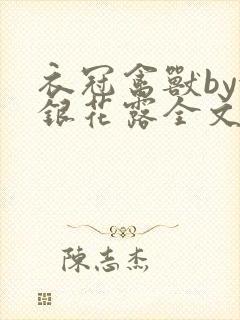 衣冠禽獸by
銀花露全文
陳志杰